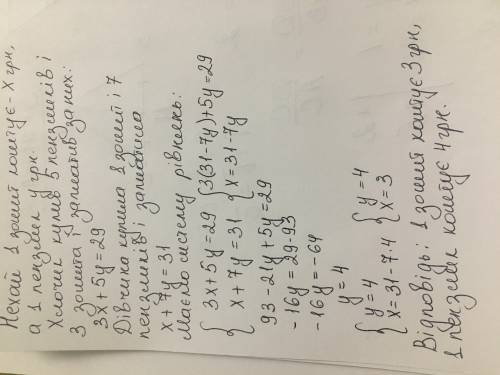 Нехай 1 зошит коштує - x грн,
а 1 пензлик y грн.
Хлопчик купив 5 пензликів і
3 зошита і заплатив за них:
3x + 5y = 29
Дівчинка купила 1 зошит і 7
пензликів і заплатила
x + 7y = 31
Маємо систему рівнянь:
{ 3x + 5y = 29 { 3(31 - 7y) + 5y = 29
x + 7y = 31 x = 31 - 7y
93 - 21y + 5y = 29
-16y = 29 - 93
-16y = -64
y = 4
{ y = 4 { y = 4
x = 31 - 7·4 x = 3
Відповідь: 1 зошит коштує 3 грн,
1 пензлик коштує 4 грн.